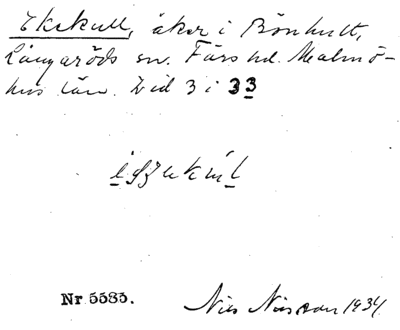 Ekekull, åker i Bönhult,
Långaröds sn. Färs hd. Malmö-
hus län. Lid 3 i 33
Nr 5585.
Nils Nilsson 1934